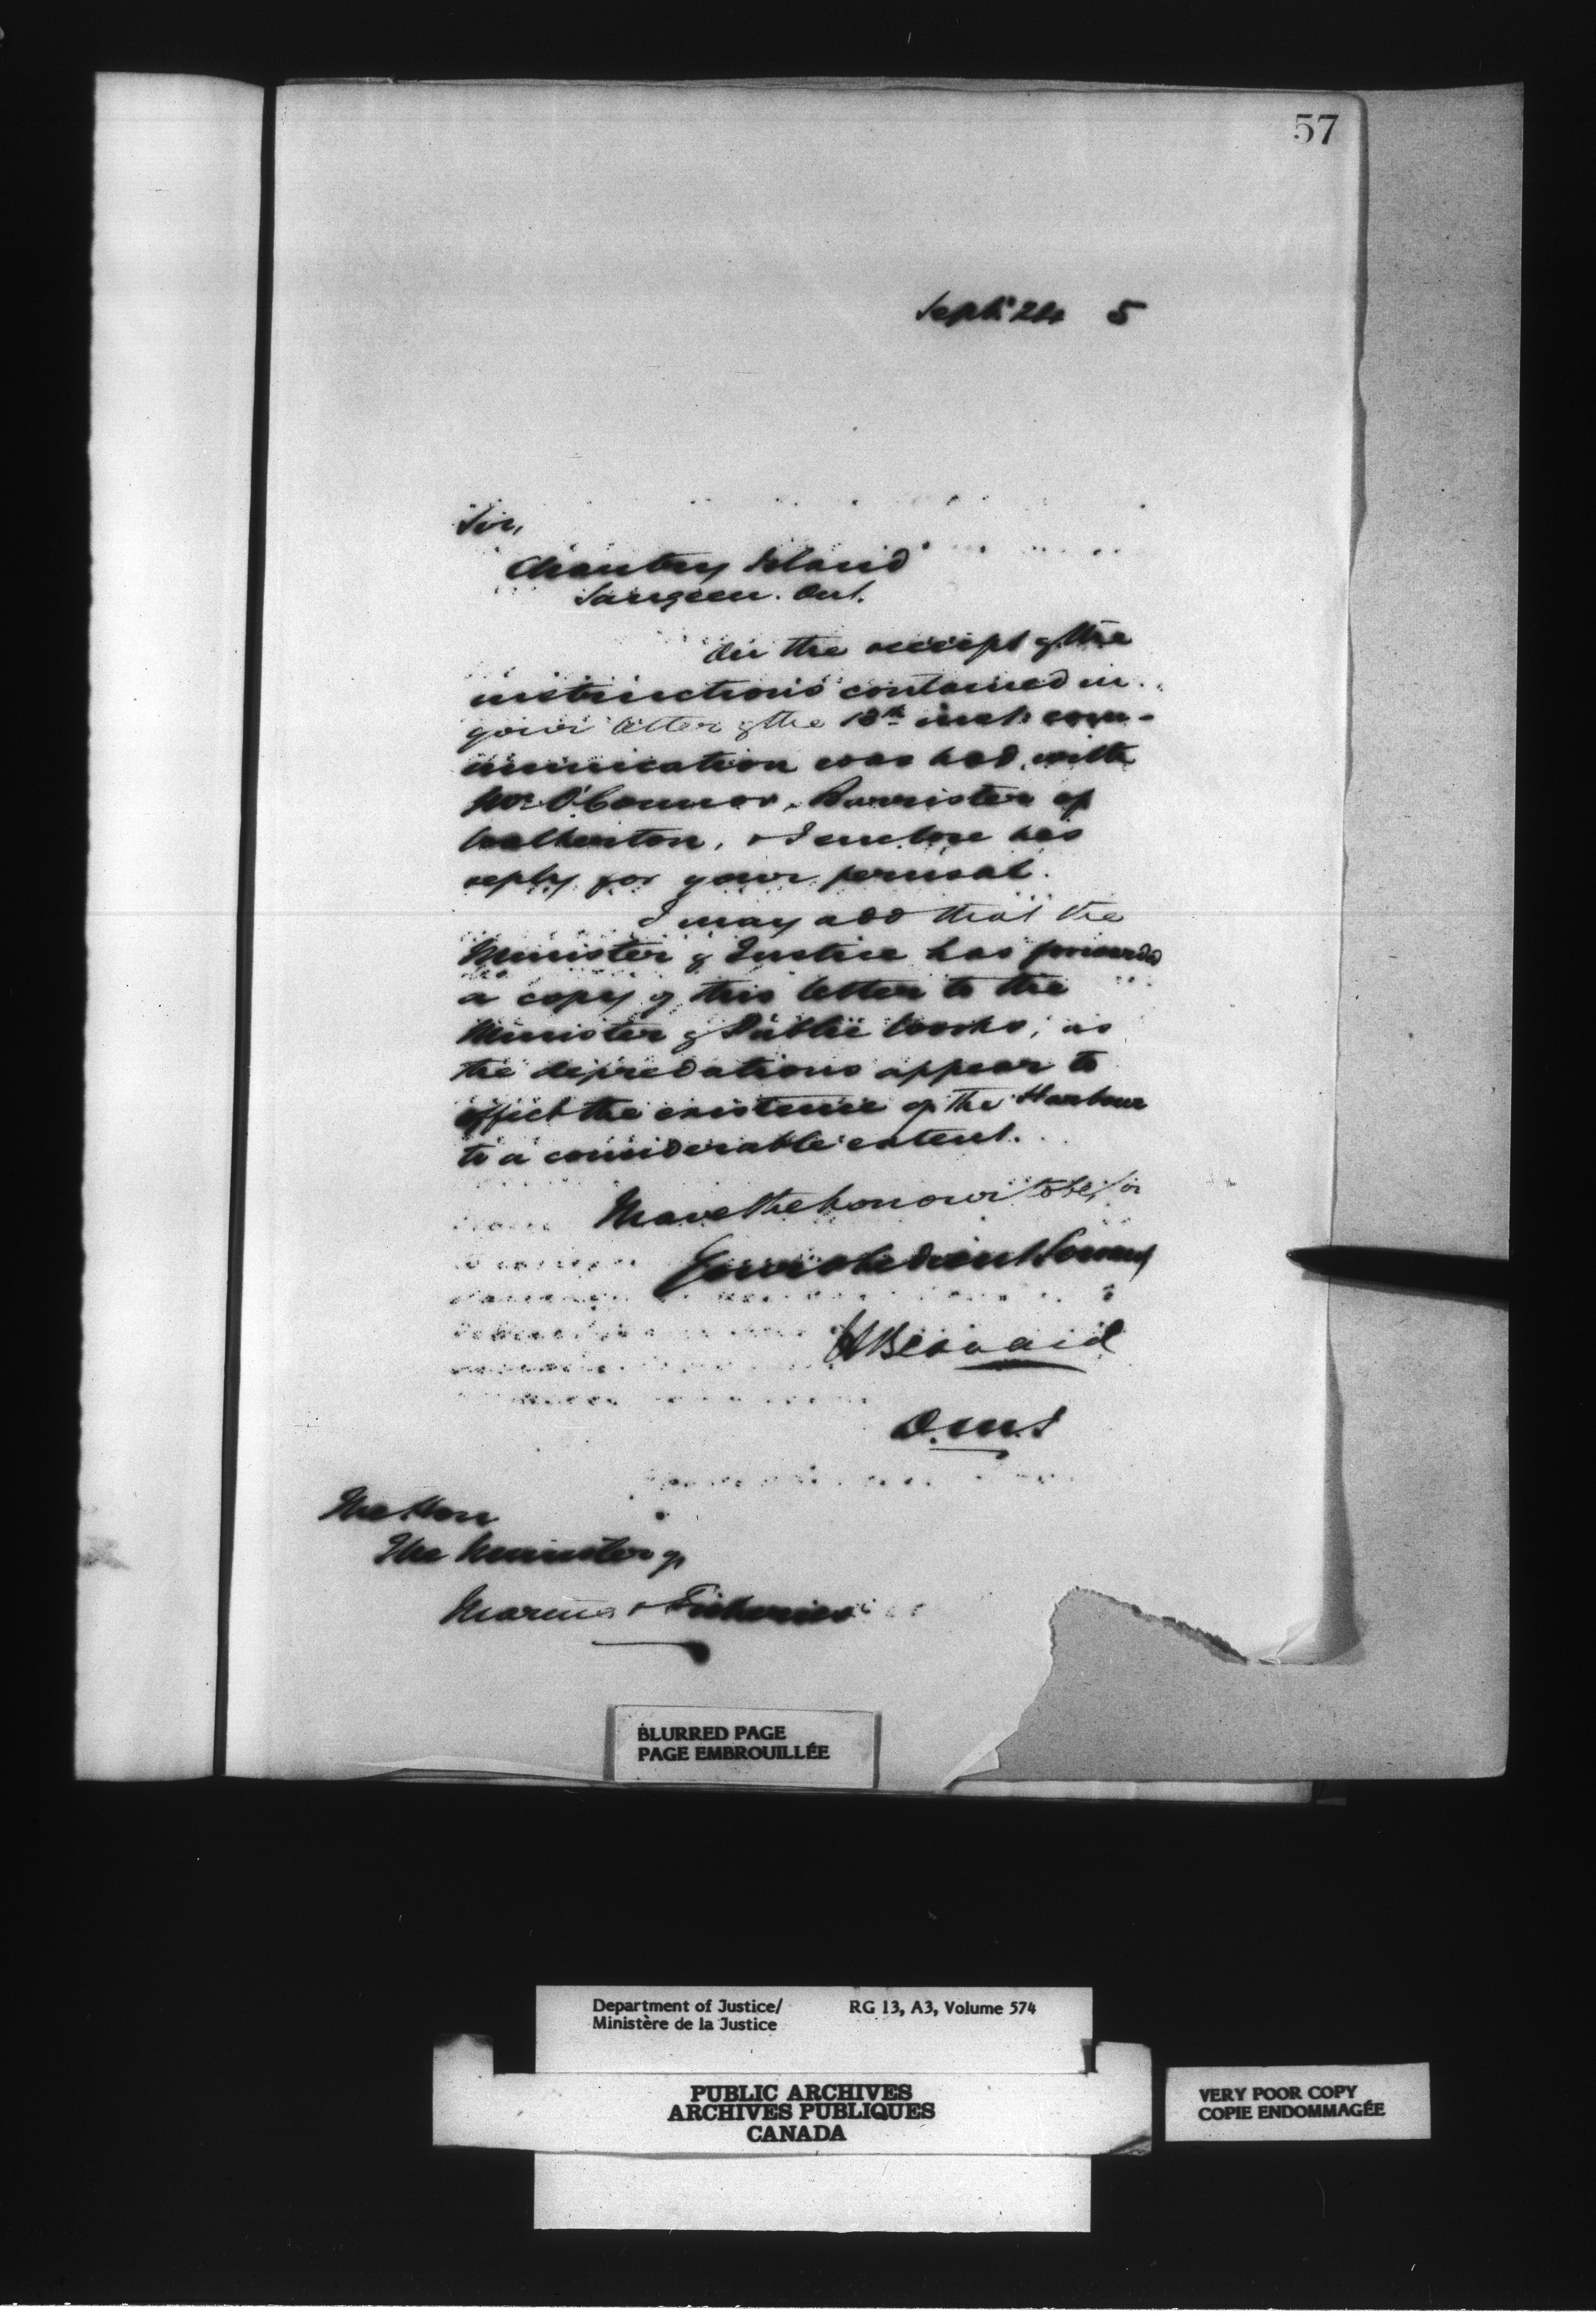 57
Sept. 24 5
Sir,
Chantry Island
Saugeen. Ont.
On the receipt of the
instructions contained in
your letter of the 13th inst. com-
munication was had with
Mr. O'Connor, Barrister of
Walkerton, & I enclose his
reply for your perusal.
I may add that the
Minister of Justice has forwarded
a copy of this letter to the
Minister of Public Works, as
the depredations appear to
affect the existence of the Harbour
to a considerable extent.
I have the honour to be, Sir
Your obedient Servant
H Bernard
D.M.J
The Hon
The Minister of
Marine & Fisheries
BLURRED PAGE
PAGE EMBROUILLÉE
Department of Justice/ RG 13, A3, Volume 574
Ministère de la Justice
PUBLIC ARCHIVES
ARCHIVES PUBLIQUES
CANADA
VERY POOR COPY
COPIE ENDOMMAGÉE